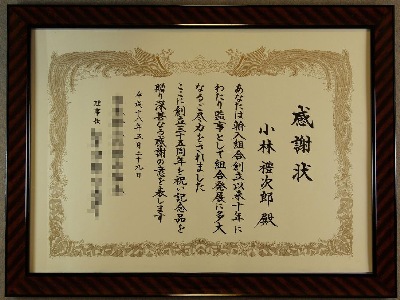 感謝状
小林禮次郎殿
あなたは新入組合創立以来十年に
わたり監事として組合発展に多大
なるご尽力をされました
ここに創立三十五周年を祝い記念品を
贈り深甚なる感謝の意を表します
平成十八年三月二十九日
理事長